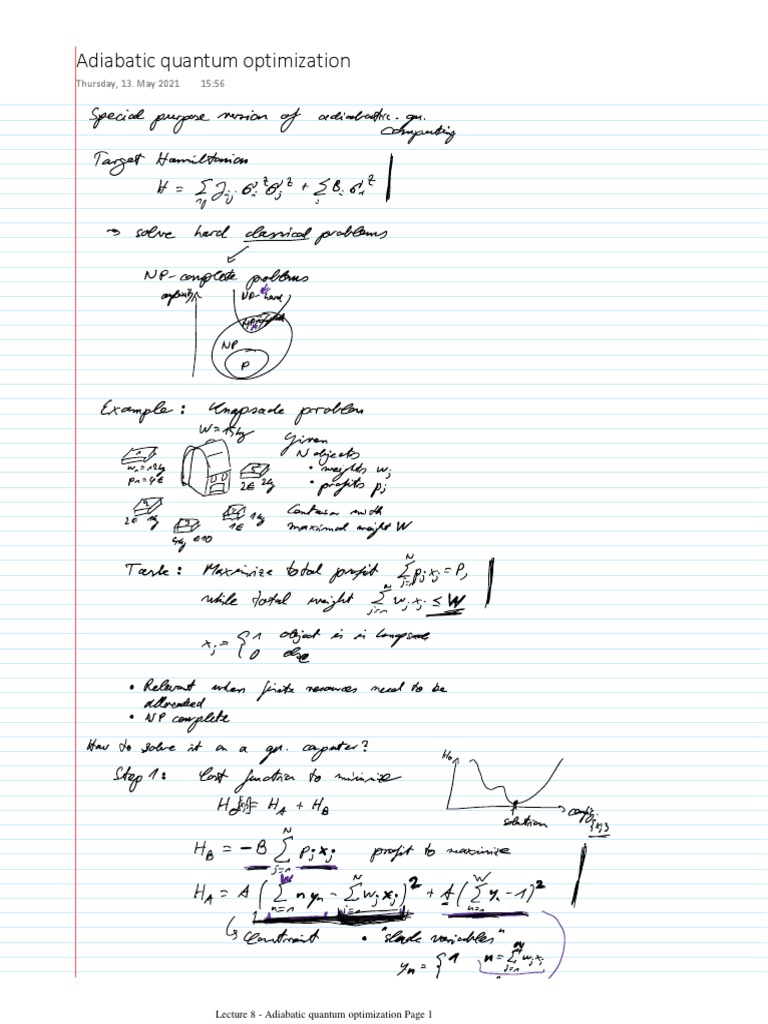 Adiabatic quantum optimization
Thursday, 13. May 2021 15:56
Special purpose version of adiabatic qu.
computing
Target Hamiltonian
H = ∑_{ij} J_{ij} σ_i^z σ_j^z + ∑_i B_i σ_i^z
→ solve hard classical problems
NP-complete problems
NP-hard
NP
P
Example: Knapsack problem
W=15kg
Given
N objects
• weights w_j
• profits p_j
1
w_1=12kg
p_1=4€
2€ 2kg
2€ 1kg
4kg €10
1€ 1kg
Container with
maximal weight W
Task: Maximize total profit ∑_{j=1}^N p_j x_j = P,
while total weight ∑_{j=1}^N w_j x_j ≤ W
x_j = { 1 object is in knapsack
0 else
• Relevant when finite resources need to be
allocated
• NP complete
How to solve it on a qu. computer?
Step 1: Cost function to minimize
H_A + H_B
solution
H_B = -B ∑_{j=1}^N p_j x_j profit to maximize
H_A = A (∑_{n=1}^W n y_n - ∑_{j=1}^N w_j x_j)^2 + A (∑_{n=1}^W y_n - 1)^2
↳ Constraint • "slack variables"
y_n = { 1 n = ∑_{j=1}^N w_j x_j
Lecture 8 - Adiabatic quantum optimization Page 1